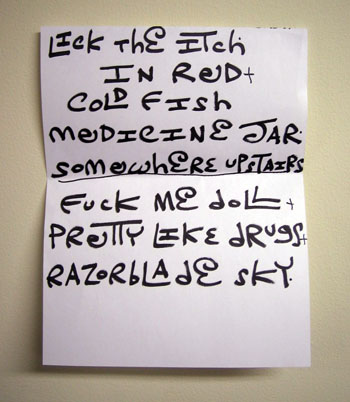 LICK THE ITCH
IN RED +
COLD FISH
MEDICINE JAR.
SOMEWHERE UPSTAIRS
FUCK ME DOLL +
PRETTY LIKE DRUGS +
RAZORBLADE SKY.